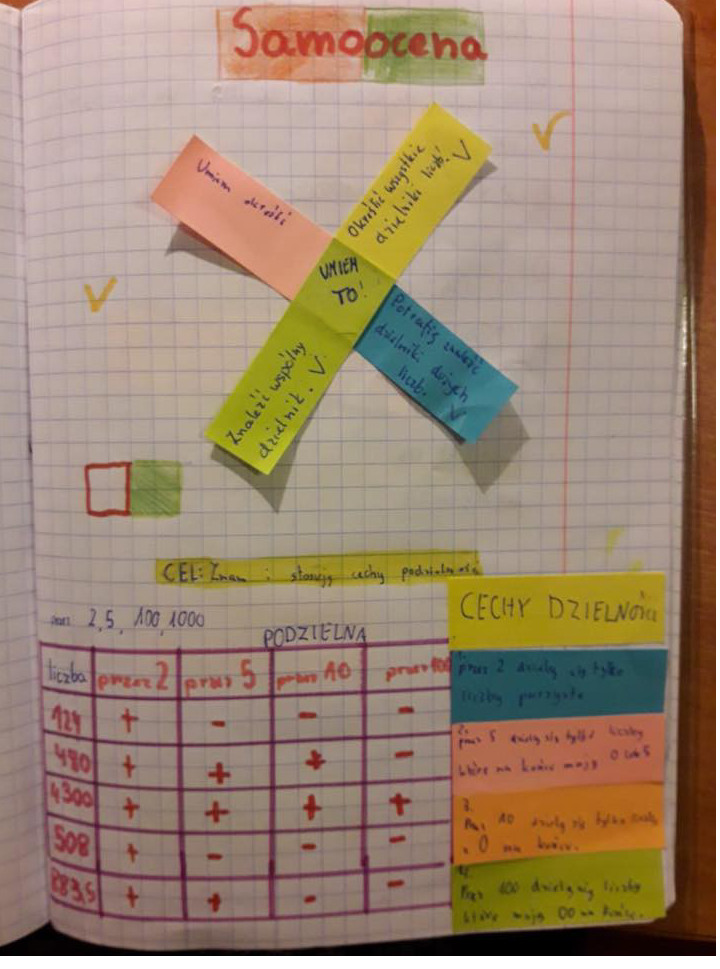 Samoocena
Umiem określić
Określić wszystkie
dzielniki liczb! V
UMIEM
TO!
Potrafię znaleźć
dzielniki dużych
liczb. V
Znaleźć wspólny
dzielnik. V
CEL: Znam i stosuję cechy podzielności
przez 2,5, 100,1000
PODZIELNA
liczba przez 2 przez 5 przez 10 przez 100
124 + - - -
480 + + + -
4300 + + + +
508 + - - -
883,5 + + - -
CECHY DZIELNOŚCI
przez 2 dzielą się tylko
liczby parzyste
2. przez 5 dzielą się tylko liczby
które na końcu mają 0 lub 5
3.
Przez 10 dzielą się tylko liczby
z 0 na końcu.
4.
Przez 100 dzielą się liczby
które mają 00 na końcu.